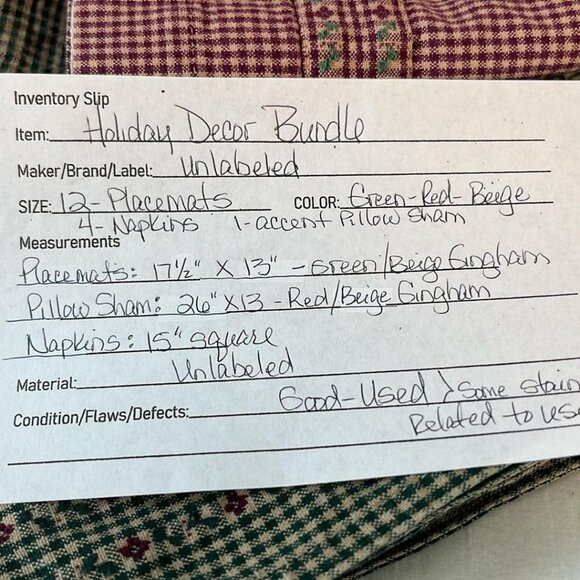 Inventory Slip
Item: Holiday Decor Bundle
Maker/Brand/Label: Unlabeled
SIZE: 12-Placemats COLOR: Green-Red-Beige
4-Napkins 1-accent Pillow Sham
Measurements
Placemats: 17½" X 13" - Green/Beige Gingham
Pillow Sham: 26" X 13 - Red/Beige Gingham
Napkins: 15" square
Material: Unlabeled
Condition/Flaws/Defects: Good-Used > Some stain
Related to use